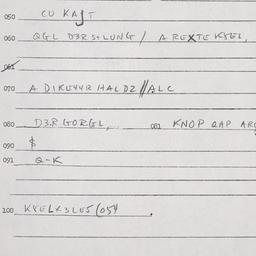 050 CU KAJT
060 QGL D3R S+LUNG / A REXTE KYEL,
061
070 A DIKE44R HALDZ // ALC
080 D3R GORGL, 081 KNOP QAP ARG
090 $
091 Q-K
100 KYELX3LES (054 .